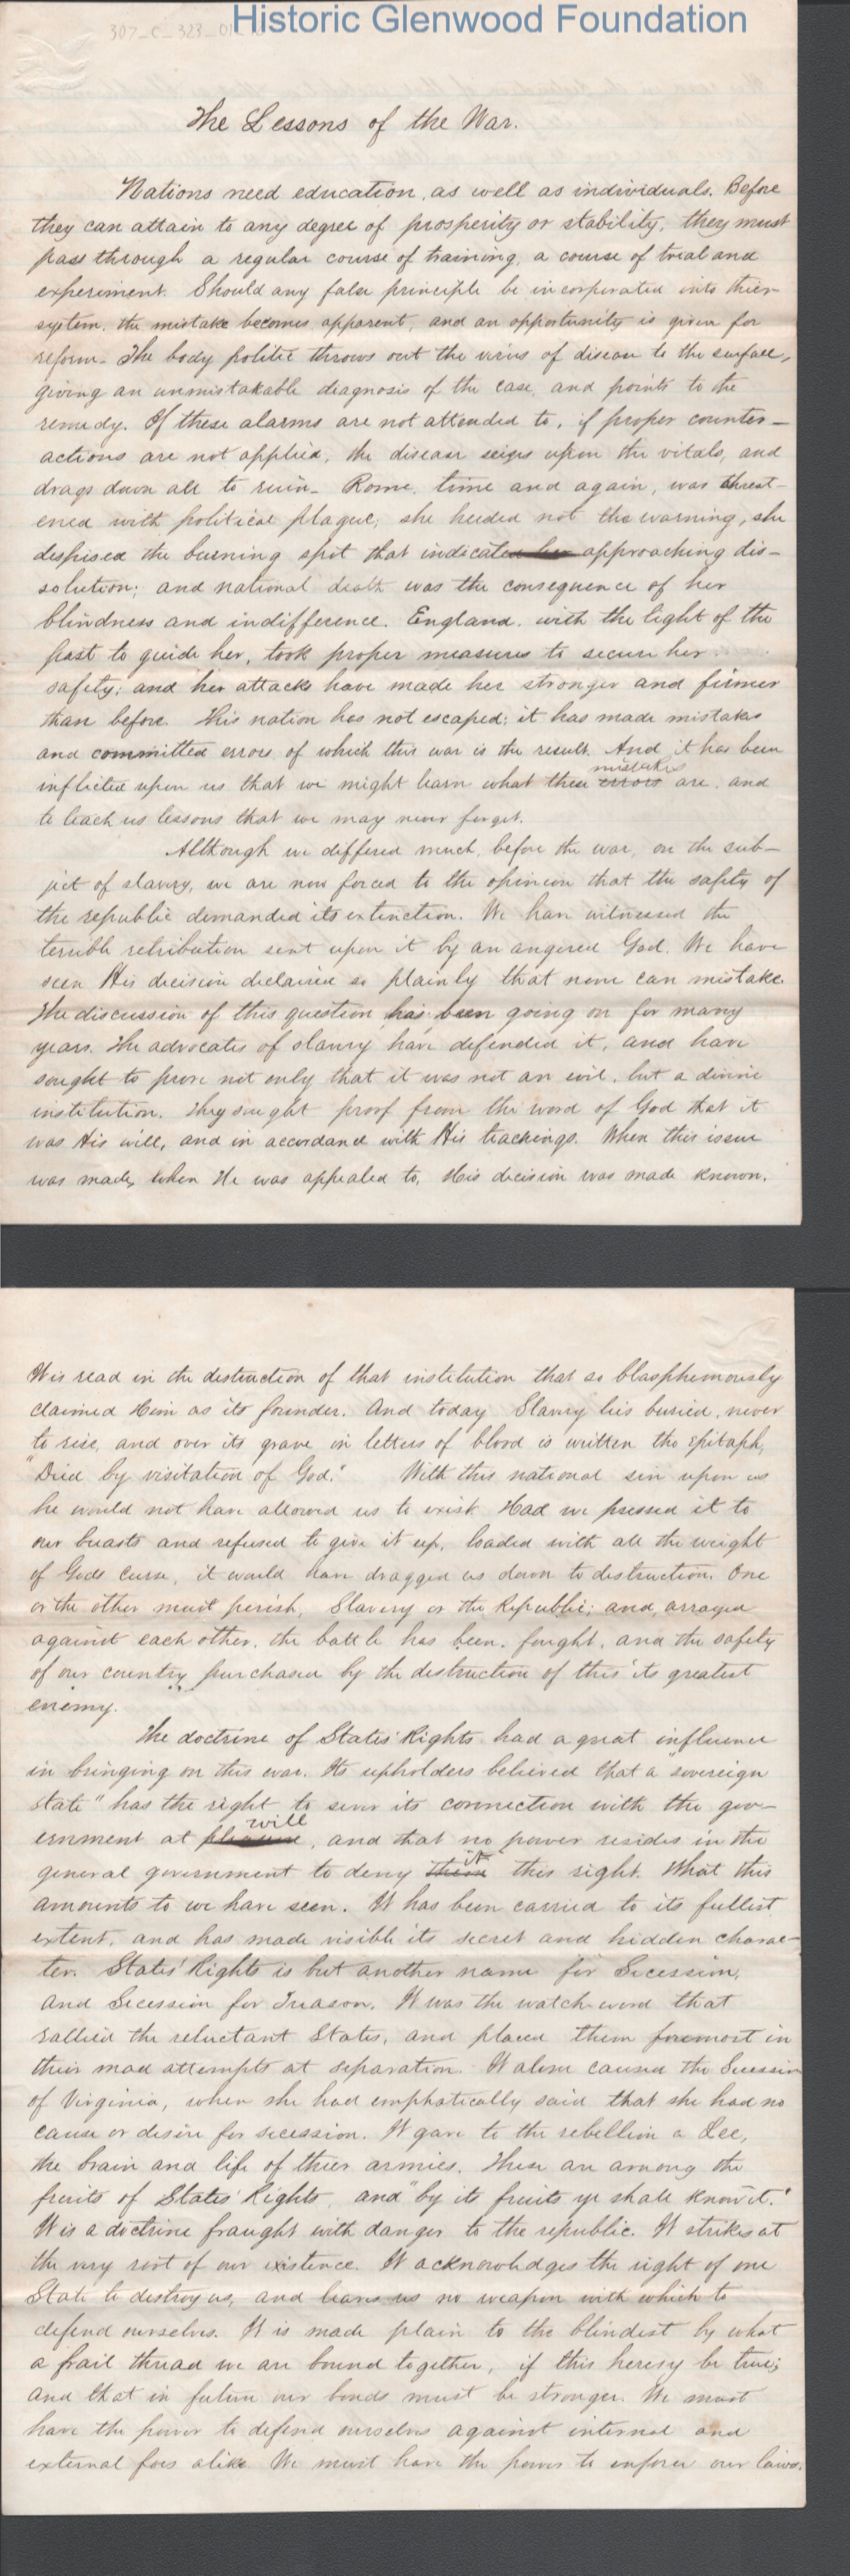 Historic Glenwood Foundation
307_C_323_01
The Lessons of the War.
Nations need education, as well as individuals. Before
they can attain to any degree of prosperity or stability, they must
pass through a regular course of training, a course of trial and
experiment. Should any false principle be incorporated into thier
system, the mistake becomes apparent, and an opportunity is given for
reform. The body politic throws out the virus of disease to the surface,
giving an unmistakable diagnosis of the case, and points to the
remedy. If these alarms are not attended to, if proper counter-
actions are not applied, the disease seizes upon the vitals, and
drags down all to ruin. Rome, time and again, was threat-
ened with political plague; she heeded not the warning, she
despised the burning spot that indicated her approaching dis-
solution; and national death was the consequence of her
blindness and indifference. England, with the light of the
past to guide her, took proper measures to secure her
safety; and her attacks have made her stronger and firmer
than before. This nation has not escaped; it has made mistakes
and committed errors of which this war is the result. And it has been
mistakes
inflicted upon us that we might learn what these errors are, and
to teach us lessons that we may never forget.
Although we differed much, before the war, on the sub-
ject of slavery, we are now forced to the opinion that the safety of
the republic demanded its extinction. We have witnessed the
terrible retribution sent upon it by an angered God. We have
seen His decision declaired so plainly that none can mistake.
The discussion of this question has been going on for many
years. The advocates of slavery have defended it, and have
sought to prove not only that it was not an evil, but a divine
institution. They sought proof from the word of God that it
was His will, and in accordance with His teachings. When this issue
was made, when He was appealed to, His decision was made known.
It is read in the destruction of that institution that so blasphemously
claimed Him as its founder. And today Slavery lies buried, never
to rise, and over its grave in letters of blood is written the epitaph,
"Died by visitation of God." With this national sin upon us
he would not have allowed us to exist. Had we pressed it to
our breasts and refused to give it up, loaded with all the weight
of Gods curse, it would have dragged us down to destruction. One
or the other must perish, Slavery or the Republic; and, arrayed
against each other, the battle has been fought, and the safety
of our country purchased by the destruction of this its greatest
enemy.
The doctrine of States' Rights had a great influence
in bringing on this war. Its upholders believed that a "sovereign
state" has the right to sever its connection with the gov-
will
ernment at pleasure, and that no power resides in the
it
general government to deny them this right. What this
amounts to we have seen. It has been carried to its fullest
extent, and has made visible its secret and hidden charac-
ter. States' Rights is but another name for Secession,
and Secession for Treason. It was the watch-word that
rallied the reluctant States, and placed them foremost in
their mad attempts at separation. It alone caused the Secession
of Virginia, when she had emphatically said that she had no
cause or desire for secession. It gave to the rebellion a Lee,
the brain and life of thier armies. These are among the
fruits of States' Rights, and "by its fruits ye shall know it."
It is a doctrine fraught with danger to the republic. It strikes at
the very root of our existence. It acknowledges the right of one
State to destroy us, and leaves us no weapon with which to
defend ourselves. It is made plain to the blindest by what
a frail thread we are bound together, if this heresy be true;
and that in future our bonds must be stronger. We must
have the power to defend ourselves against internal and
external foes alike. We must have the power to enforce our laws.